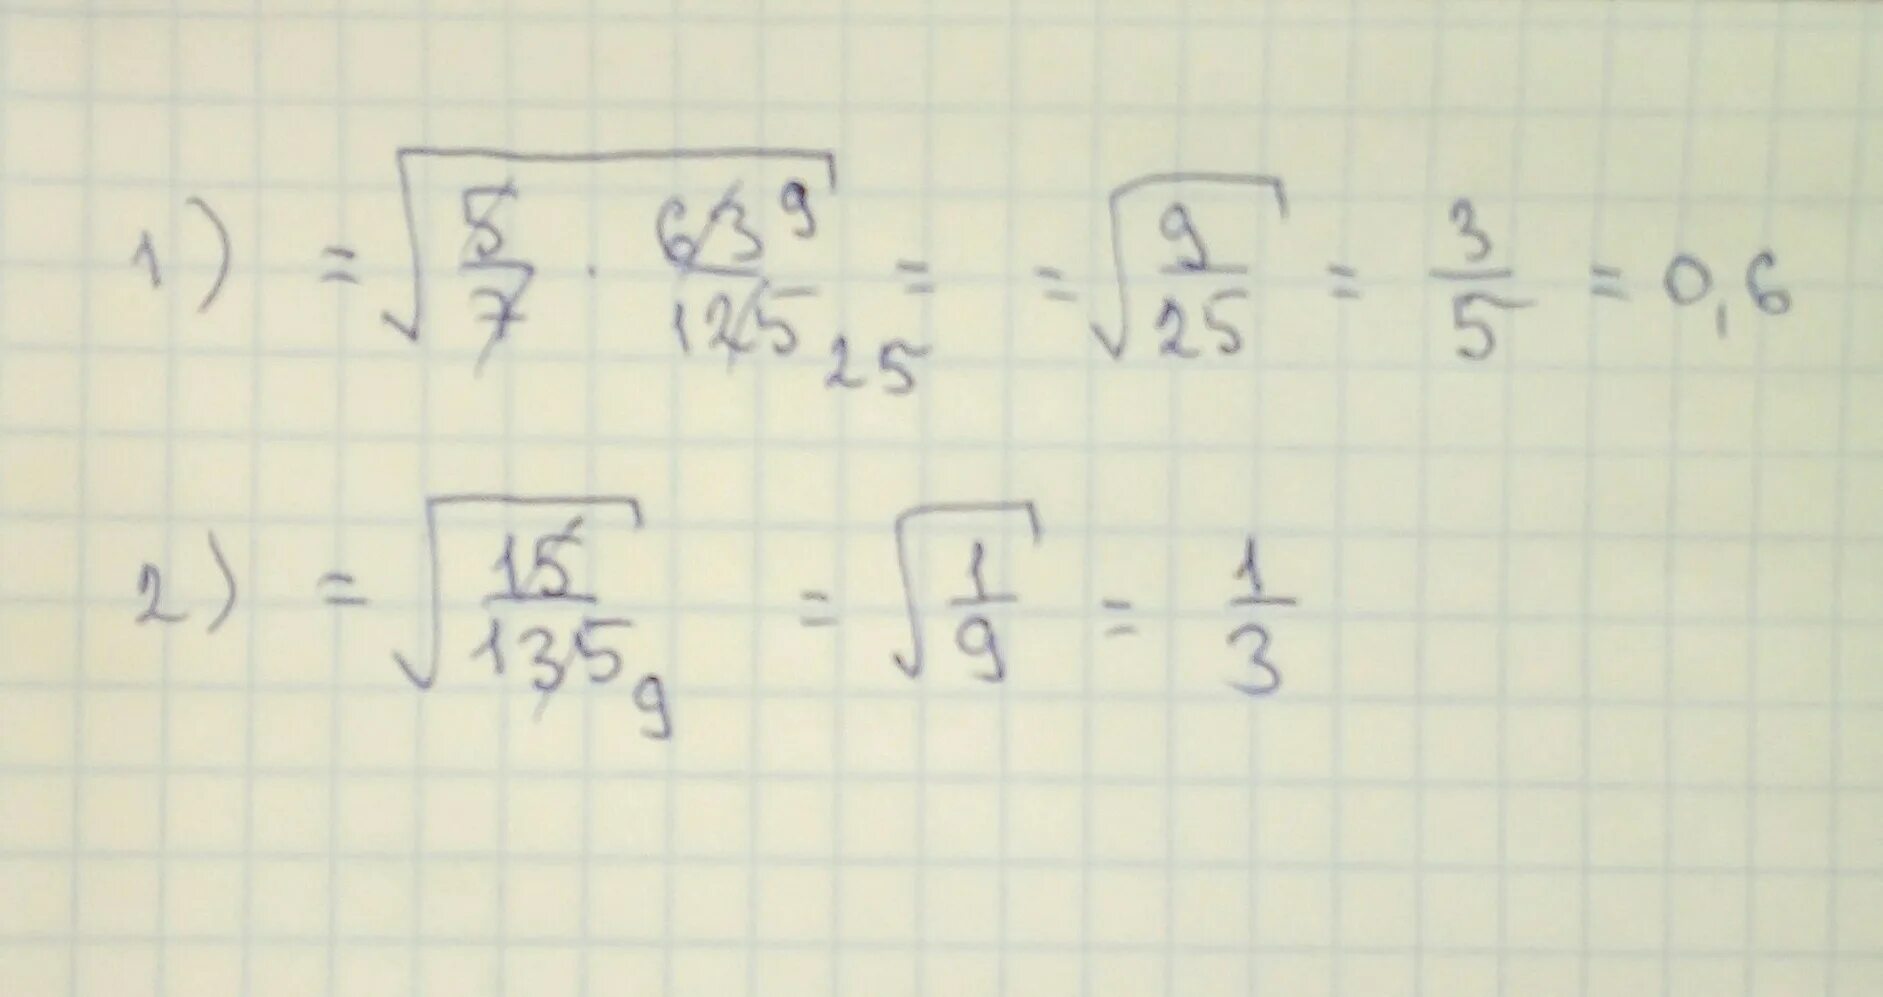 1) = √(5/7 · 63 9/125 25) = = √(9/25) = 3/5 = 0,6
2) = √(15/135 9) = √(1/9) = 1/3